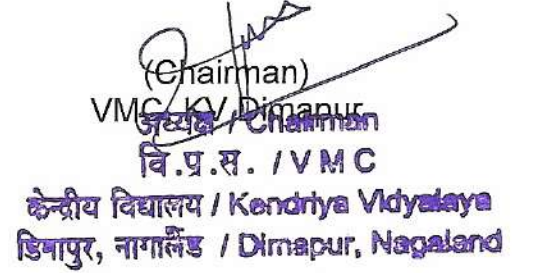 (Chairman)
VMC, KV Dimapur
अध्यक्ष / Chairman
वि.प्र.स. / V M C
केन्द्रीय विद्यालय / Kendriya Vidyalaya
डिमापुर, नागालैंड / Dimapur, Nagaland